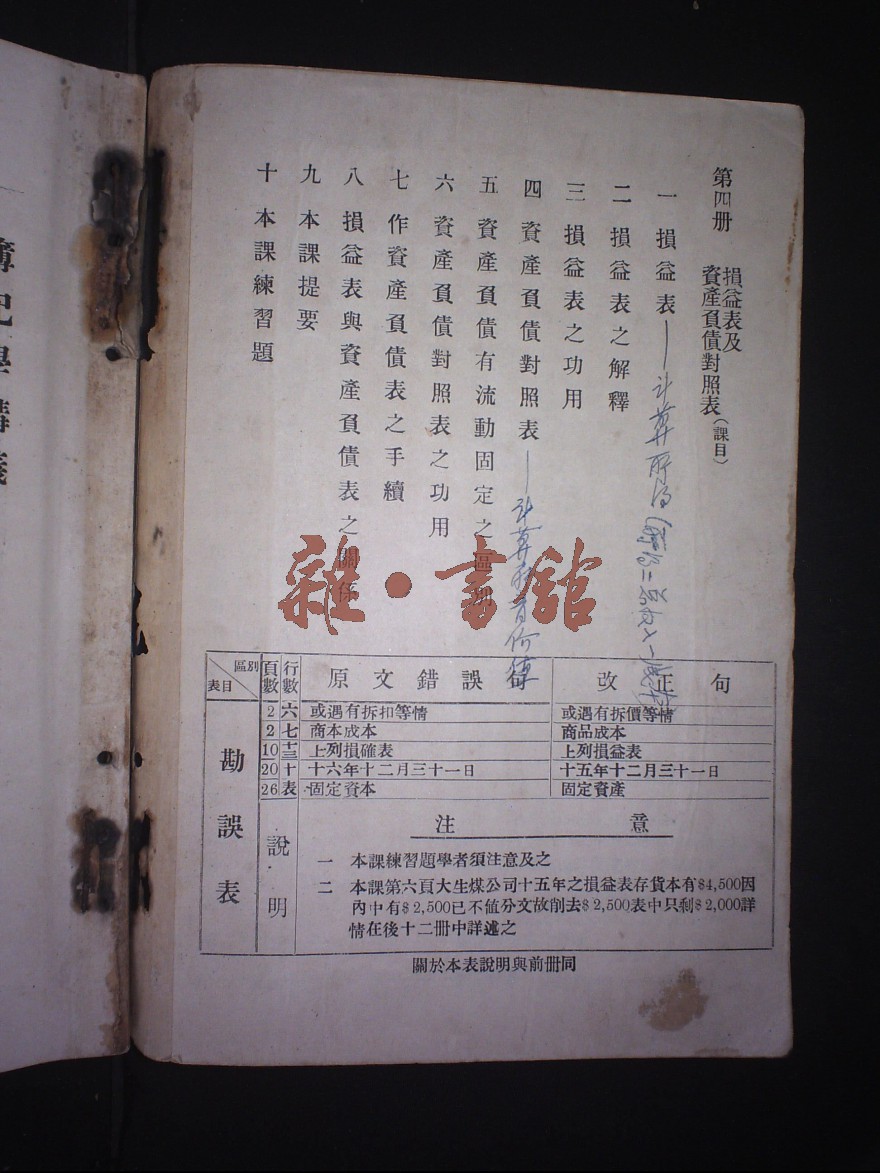 第四册 損益表及資產負債對照表(課目)
一 損益表——計算所得
二 損益表之解釋
三 損益表之功用
四 資產負債對照表——計算
五 資產負債有流動固定之區別
六 資產負債對照表之功用
七 作資產負債表之手續
八 損益表與資產負債表之關係
九 本課提要
十 本課練習題
雜·書館
區別 表目 頁數 行數 原文錯誤句 改正句
勘誤表
2 六 或遇有拆扣等情 或遇有拆價等情
2 七 商本成本 商品成本
10 十三 上列損確表 上列損益表
20 十 十六年十二月三十一日 十五年十二月三十一日
26 表 固定資本 固定資產
說明
注意
一 本課練習題學者須注意及之
二 本課第六頁大生煤公司十五年之損益表存貨本有$4,500因
內中有$2,500已不值分文故削去$2,500表中只剩$2,000詳
情在後十二冊中詳述之
關於本表說明與前冊同
簿記學講義